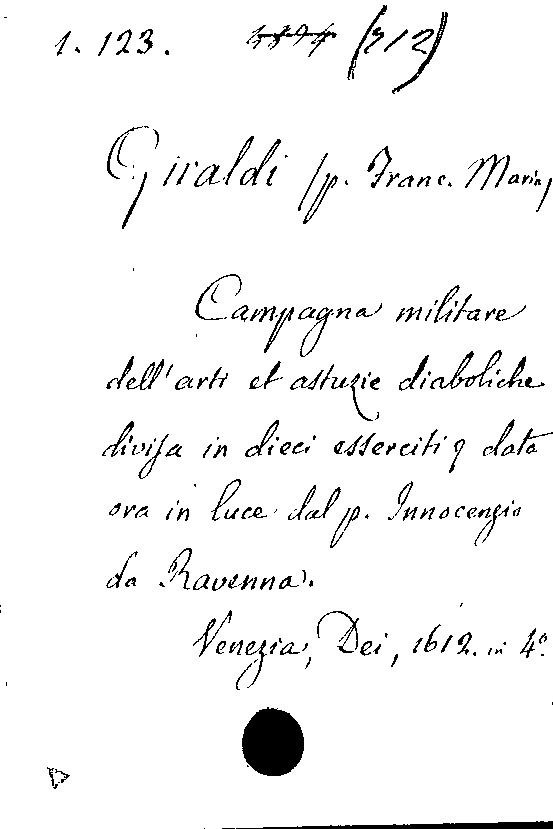 1. 123. (312)
Giraldi (p. Franc. Maria)
Campagna militare
dell'arti et astuzie diaboliche
divisa in dieci esserciti data
ora in luce dal p. Innocenzio
da Ravenna.
Venezia, Dei, 1612. in 4º.